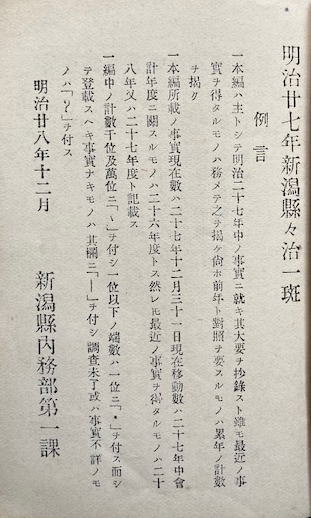 明治廿七年新潟縣々治一斑
例言
一本編ハ主トシテ明治二十七年中ノ事實ニ就キ其大要ヲ抄錄スト雖モ最近ノ事
實ヲ得タルモノハ務メテ之ヲ揭ケ尙ホ前年ト對照ヲ要スルモノハ累年ノ計數
ヲ揭ク
一本編所載ノ事實現在數ハ二十七年十二月三十一日現在移動數ハ二十七年中會
計年度ニ關スルモノハ二十六年度トス然レモ最近ノ事實ヲ得タルモノハ二十
八年又ハ二十七年度ト記載ス
一編中ノ計數千位及萬位ニ「、」ヲ付シ一位以下ノ端數ハ一位ニ「.」ヲ付ス而シ
テ登載スヘキ事實ナキモノハ其欄ニ「—」ヲ付シ調查未了或ハ事實不詳ノモ
ノハ「?」ヲ付ス
明治廿八年十二月
新潟縣內務部第一課